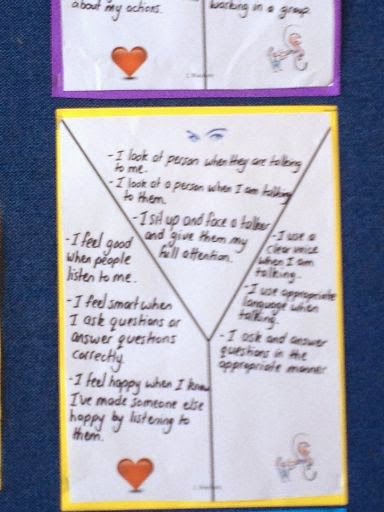 about my actions.
working in a group.
- I look at person when they are talking
to me.
- I look at a person when I am talking
to them.
- I sit up and face a talker
and give them my
full attention.
- I feel good
when people
listen to me.
- I feel smart when
I ask questions or
answer questions
correctly.
- I feel happy when I know
I've made someone else
happy by listening to
them.
- I use a
clear voice
when I am
talking.
- I use appropriate
language when
talking.
- I ask and answer
questions in the
appropriate manner